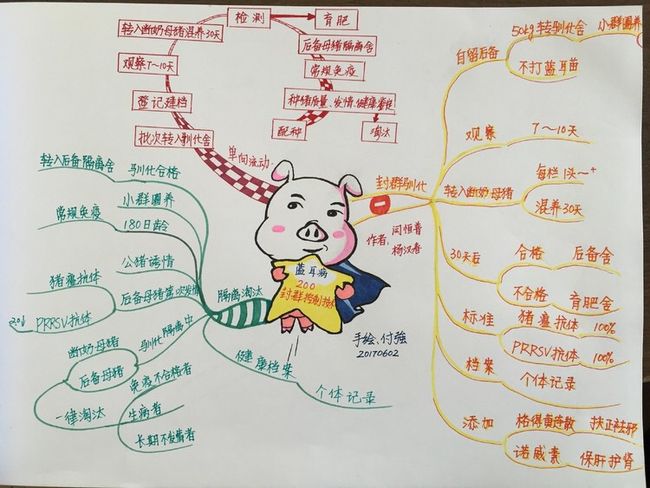 检测
育肥
转入断奶母猪混养30天
观察7~10天
登记建档
批次转入驯化舍
后备母猪隔离舍
常规免疫
配种
淘汰
单向流动
封群驯化
作者:
闫恒普
杨汉春
蓝耳病
200
封群控制技术
手绘:付强
20170602
自留后备
50kg转驯化舍
小群圈养
不打蓝耳苗
观察
7~10天
转入断奶母猪
每栏1头~+
混养30天
30天后
合格
后备舍
不合格
育肥舍
标准
猪瘟抗体
100%
PRRSV抗体
100%
档案
个体记录
添加
扶正祛邪
诺威素
保肝护肾
隔离淘汰
转入后备隔离舍
驯化合格
小群圈养
常规免疫
180日龄
公猪诱情
猪瘟抗体
PRRSV抗体
断奶母猪
后备母猪
一律淘汰
驯化隔离中
免疫不合格者
生病者
健康档案
个体记录